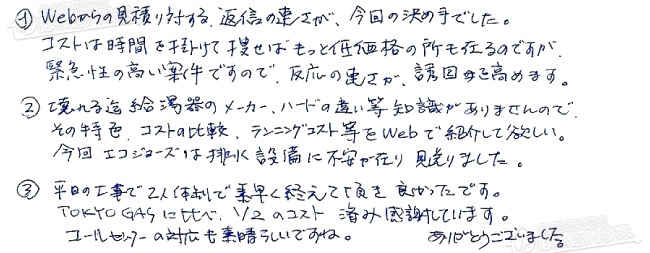 ① Webからの見積り対する、返信の速さが、今回の決め手でした。
コストは時間を掛けて捜せばもっと低価格の所も在るのですが、
緊急性の高い案件ですので、反応の速さが、誘因を高めます。
② 壊れる迄 給湯器のメーカー、ハードの違い等 知識がありませんので、
その特色、コストの比較、ランニングコスト等をWebで紹介して欲しい。
今回 エコジョーズは排水設備に不安が在り 見送りました。
③ 平日の工事で2人体制で素早く終えて頂き 良かったです。
TOKYO GASに比べ、1/2のコスト 済み感謝しています。
コールセンターの対応も素晴らしいですね。 ありがとうございました。